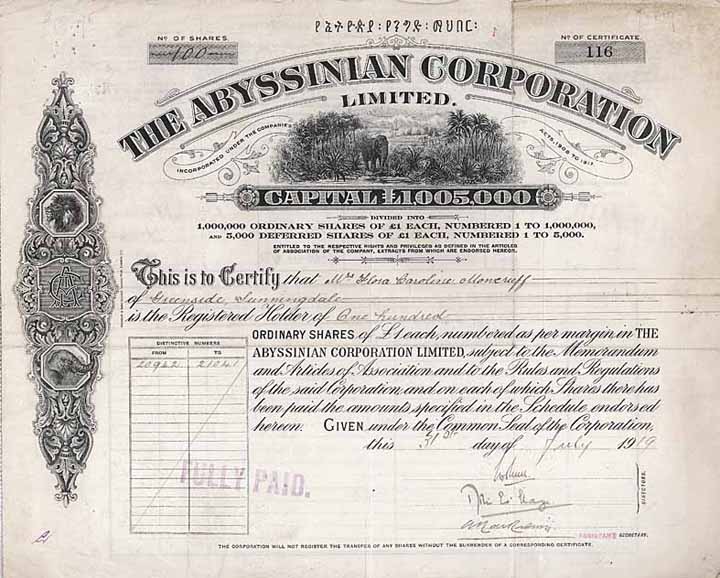 የኢትዮጵያ፡የንግድ፡ማህበር፡
Nº OF SHARES.
100
Nº OF CERTIFICATE.
116
THE ABYSSINIAN CORPORATION
LIMITED.
INCORPORATED UNDER THE COMPANIES
ACTS, 1908 TO 1917.
CAPITAL £1,005,000
DIVIDED INTO
1,000,000 ORDINARY SHARES OF £1 EACH, NUMBERED 1 TO 1,000,000,
AND 5,000 DEFERRED SHARES OF £1 EACH, NUMBERED 1 TO 5,000.
ENTITLED TO THE RESPECTIVE RIGHTS AND PRIVILEGES AS DEFINED IN THE ARTICLES
OF ASSOCIATION OF THE COMPANY, EXTRACTS FROM WHICH ARE ENDORSED HEREON.
This is to Certify that Mrs Flora Caroline Moncrieff
of Greenside, Sunningdale
is the Registered Holder of One hundred
ORDINARY SHARES of £1 each, numbered as per margin, in THE
ABYSSINIAN CORPORATION LIMITED, subject to the Memorandum
and Articles of Association and to the Rules and Regulations
of the said Corporation, and on each of which Shares there has
been paid the amounts specified in the Schedule endorsed
hereon. GIVEN under the Common Seal of the Corporation,
this 31st day of July 1919
DISTINCTIVE NUMBERS
FROM TO
20942 21041
FULLY PAID.
DIRECTORS.
SECRETARY.
THE CORPORATION WILL NOT REGISTER THE TRANSFER OF ANY SHARES WITHOUT THE SURRENDER OF A CORRESPONDING CERTIFICATE.